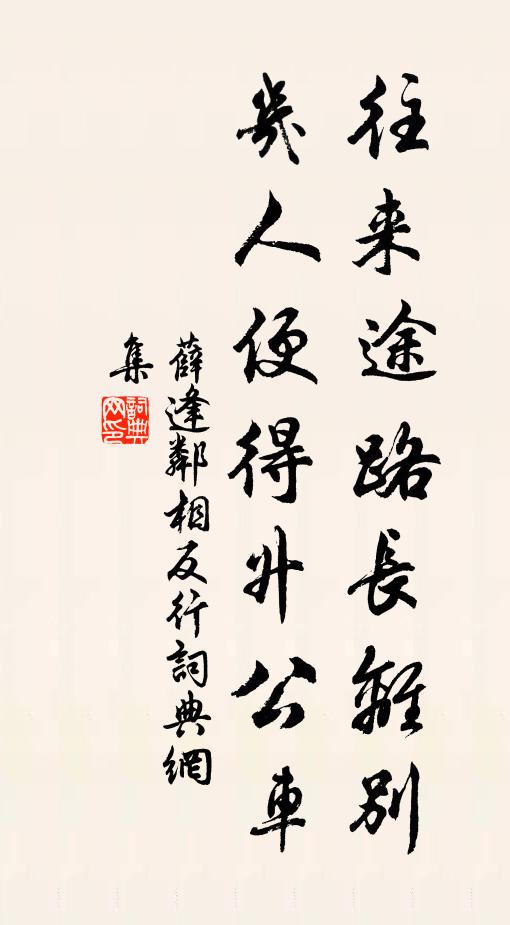 往来途路長離別
幾人便得升公車
薛逢鄰相反行詞典網
集
詞典
网印